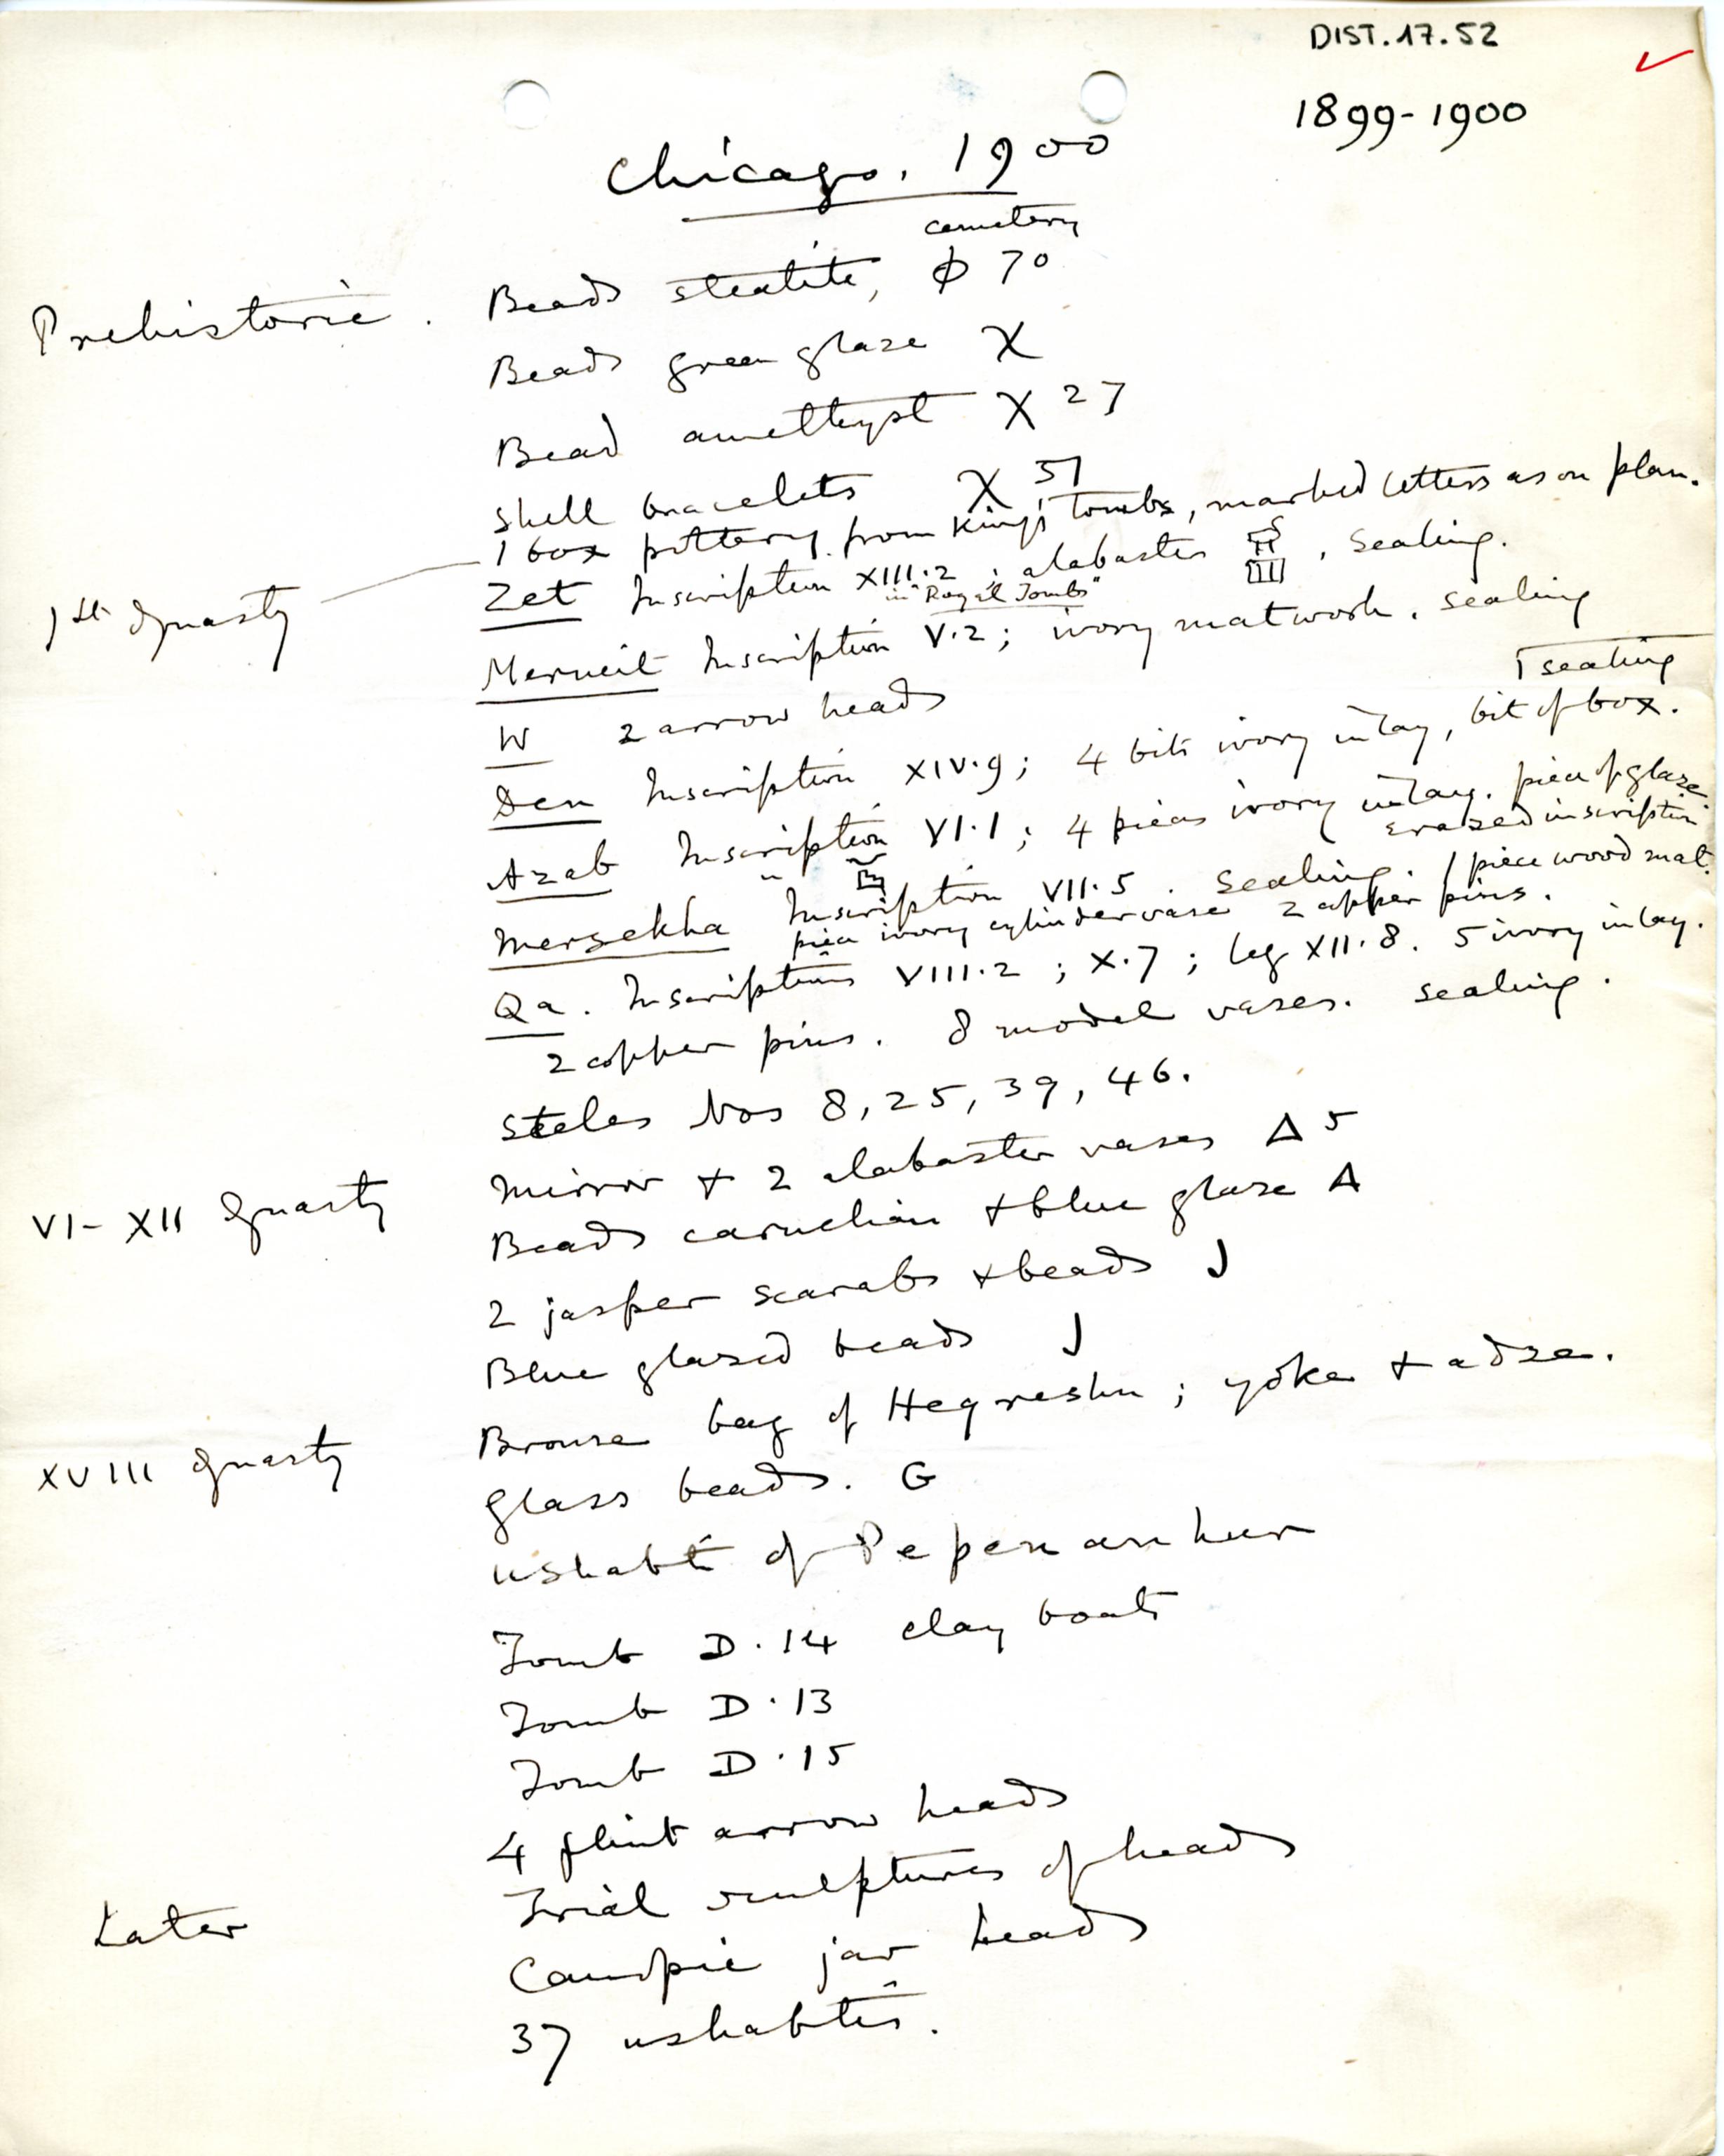 DIST.17.52
1899-1900
Chicago. 1900
cemetery
Prehistoric. Beads steatite, φ 70
Beads green glaze X
Bead amethyst X 27
Shell bracelets X 51
1 box pottery from Kings' Tombs, marked letters as on plan.
1st Dynasty Zet Inscription XIII.2; alabaster, sealing.
in "Royal Tombs"
Merneit Inscription V.2; ivory matwork. sealing
W 2 arrow heads
sealing
Den Inscription XIV.9; 4 bits ivory inlay, bit of box.
Azab Inscription VI.1; 4 pieces ivory inlay. piece of glaze.
erased inscription
Mersekha Inscription VII.5. Sealing. 1 piece wood mat.
piece ivory cylinder vase 2 copper pins.
Qa. Inscriptions VIII.2; X.7; leg XII.8. 5 ivory inlay.
2 copper pins. 8 model vases. sealing.
Steles Nos 8, 25, 39, 46.
VI-XII Dynasty Mirror + 2 alabaster vases Δ 5
Beads carnelian + blue glaze Δ
2 jasper scarabs + beads J
Blue glazed beads J
XVIII Dynasty Bronze bag of Heqreshu; yoke + adze.
Glass beads. G
Ushabti of Pepenanhur
Tomb D.14 clay boats
Tomb D.13
Tomb D.15
4 flint arrow heads
Later Trial sculptures of heads
Canopic jar heads
37 ushabtis.